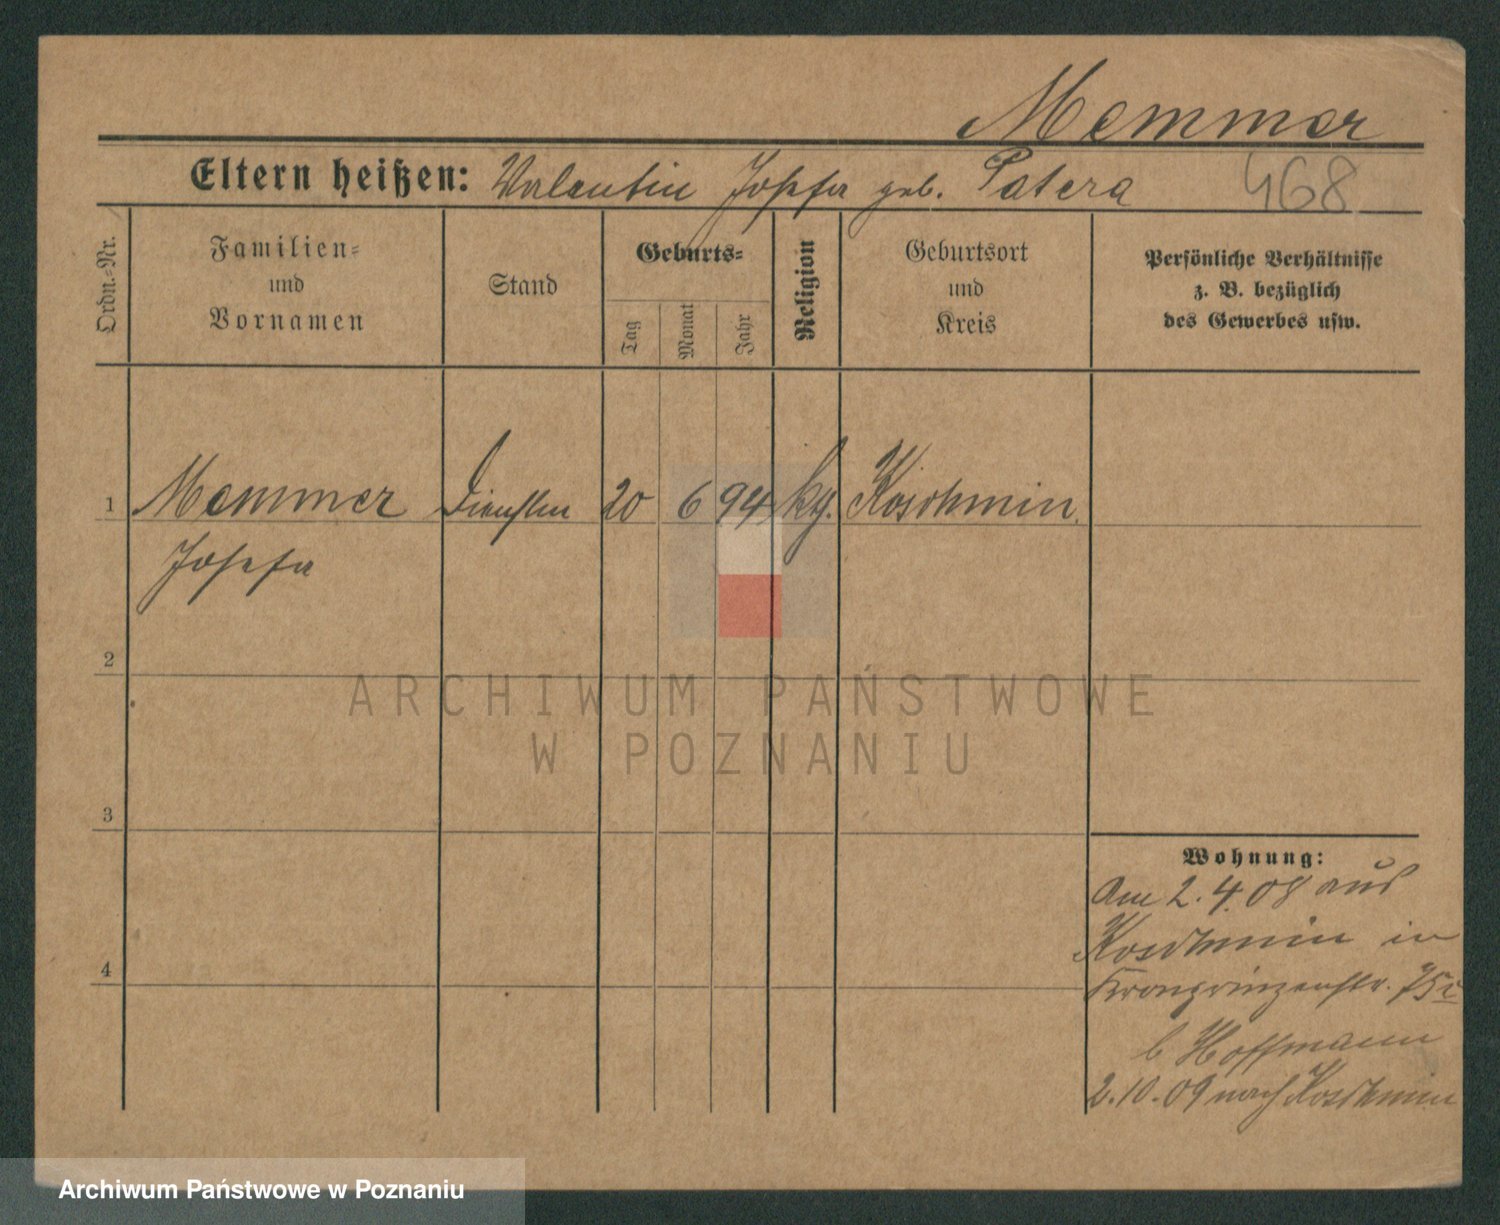 Memmer
Eltern heißen: Valentin Josefa geb. Patera 468
Ordn.-Nr.
Familien-
und
Vornamen
Stand
Geburts-
Tag
Monat
Jahr
Religion
Geburtsort
und
Kreis
Persönliche Verhältnisse
z. B. bezüglich
des Gewerbes usw.
1 Memmer 20 6 94 kth. Koschmin
Josefa
2
ARCHIWUM PAŃSTWOWE
W POZNANIU
3
Wohnung:
Am 2.4.08 aus
Koschmin in
4
Kronprinzenstr. 75
b Hoffmann
2.10.09 nach Koschmin
Archiwum Państwowe w Poznaniu